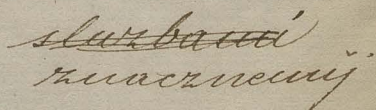 służbami
znacznemij